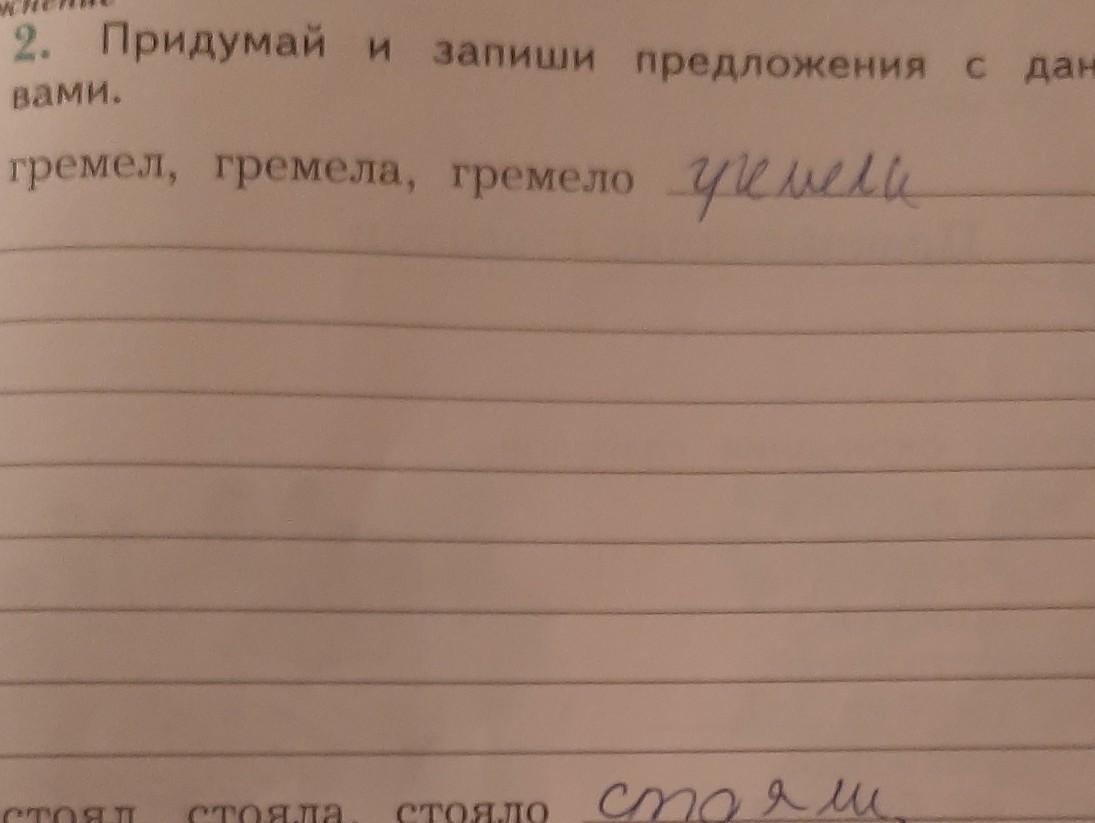 2. Придумай и запиши предложения с дан
вами.
гремел, гремела, гремело гремели
стоял стояла, стояло стояли